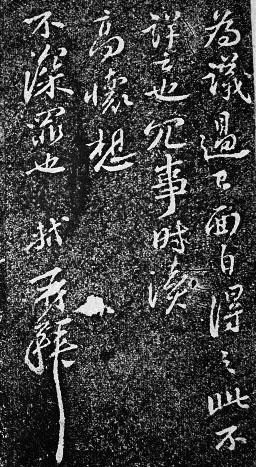 為議過已面白得之此不
詳云也冗事時瀆
高懷想
不深罪也 軾再拜